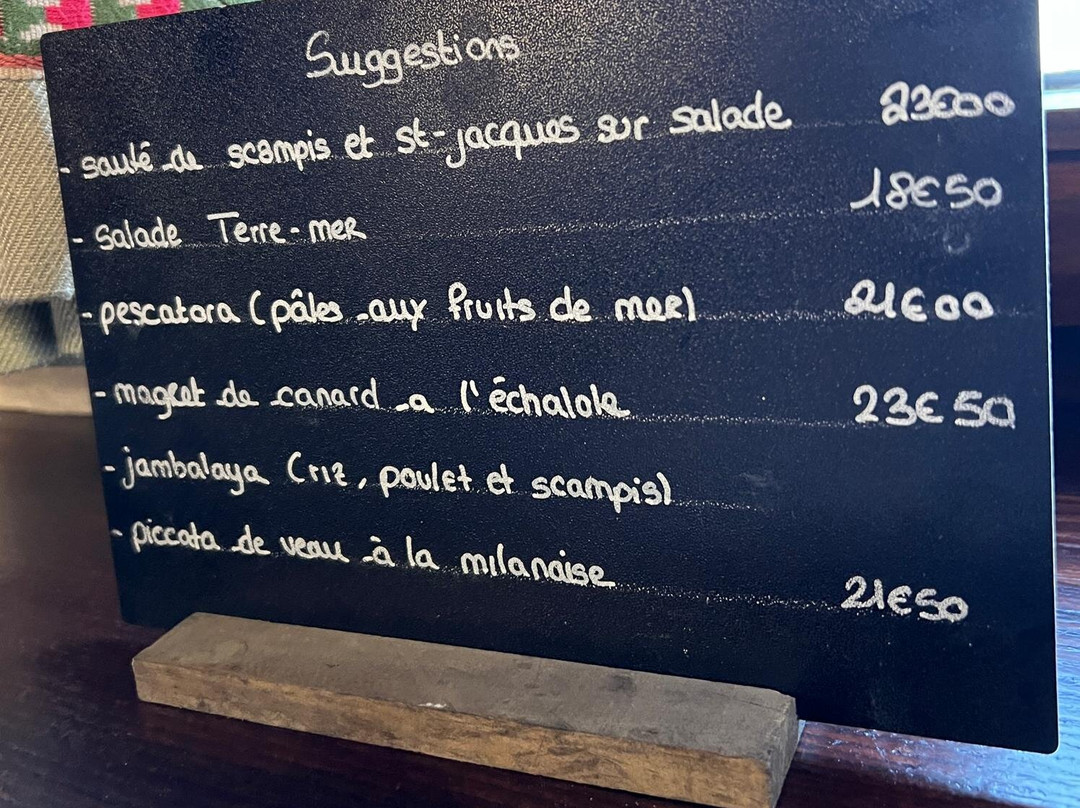 Suggestions
- sauté de scampis et st-jacques sur salade 23€00
- Salade Terre-mer 18€50
- pescatora (pâtes aux fruits de mer) 21€00
- magret de canard a l'échalote 23€50
- jambalaya (riz, poulet et scampis)
- piccata de veau à la milanaise 21€50